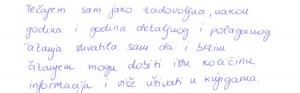 Tečajem sam jako zadovoljna, nakon
godina i godina detaljnog i polaganog
čitanja shvatila sam da i bržim
čitanjem mogu dobiti istu količinu
informacija i više uživati u knjigama.